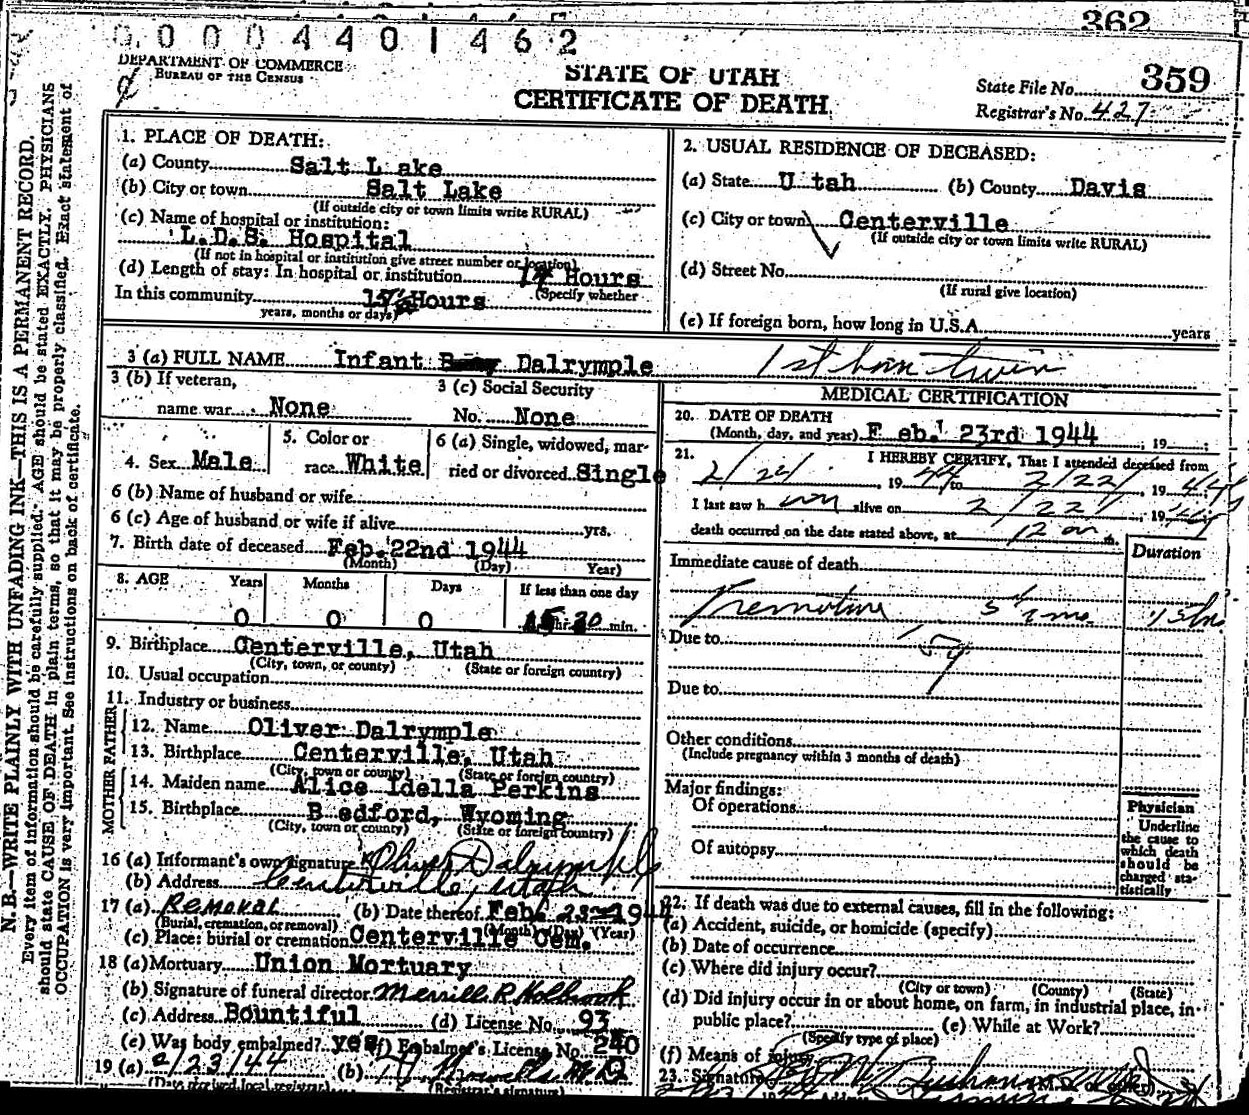 362
0 0 0 0 4 4 0 1 4 6 2
DEPARTMENT OF COMMERCE
BUREAU OF THE CENSUS
STATE OF UTAH
CERTIFICATE OF DEATH
State File No. 359
Registrar's No. 427
N.B.—WRITE PLAINLY WITH UNFADING INK—THIS IS A PERMANENT RECORD.
Every item of information should be carefully supplied. AGE should be stated EXACTLY. PHYSICIANS
should state CAUSE OF DEATH in plain terms, so that it may be properly classified. Exact statement of
OCCUPATION is very important. See instructions on back of certificate.
1. PLACE OF DEATH:
(a) County Salt L ake
(b) City or town Salt Lake
(If outside city or town limits write RURAL)
(c) Name of hospital or institution:
L.D.S. Hospital
(If not in hospital or institution give street number or location)
(d) Length of stay: In hospital or institution Hours
(Specify whether
In this community Hours
years, months or days)
2. USUAL RESIDENCE OF DECEASED:
(a) State U tah (b) County Davis
(c) City or town Centerville
(If outside city or town limits write RURAL)
(d) Street No.
(If rural give location)
(e) If foreign born, how long in U.S.A. years
3 (a) FULL NAME Infant Dalrymple 1st born twin
3 (b) If veteran,
name war None
3 (c) Social Security
No. None
4. Sex Male
5. Color or
race White
6 (a) Single, widowed, mar-
ried or divorced Single
6 (b) Name of husband or wife
6 (c) Age of husband or wife if alive yrs.
7. Birth date of deceased Feb. 22nd 1944
(Month) (Day) Year)
8. AGE Years Months Days If less than one day
0 0 0 15 hr. 30 min.
9. Birthplace Centerville, Utah
(City, town, or county) (State or foreign country)
10. Usual occupation
11. Industry or business
FATHER
12. Name Oliver Dalrymple
13. Birthplace Centerville, Utah
(City, town or county) (State or foreign country)
MOTHER
14. Maiden name Alice Idella Perkins
15. Birthplace B edford, Wyoming
(City, town or county) (State or foreign country)
16 (a) Informant's own signature Oliver Dalrymple
(b) Address Centerville, Utah
17 (a) Removal (b) Date thereof Feb. 23 1944
(Burial, cremation, or removal) (Month) (Day) (Year)
(c) Place: burial or cremation Centerville Cem.
18 (a) Mortuary Union Mortuary
(b) Signature of funeral director Merrill R Holbrook
(c) Address Bountiful (d) License No. 93
(e) Was body embalmed? yes (f) Embalmer's License No. 240
19 (a) 2/23/44 (b)
(Date received local registrar) (Registrar's signature)
MEDICAL CERTIFICATION
20. DATE OF DEATH
(Month, day, and year) F eb. 23rd 1944 , 19 ;
21. I HEREBY CERTIFY, That I attended deceased from
2/22/ , 19 44 to 2/22/ , 19 44
I last saw h im alive on 2/22/ , 19 44
death occurred on the date stated above, at 12 m.
Immediate cause of death
Duration
Premature 15 hrs
Due to
159
Due to
Other conditions
(Include pregnancy within 3 months of death)
Major findings:
Of operations
Of autopsy
Physician
Underline
the cause to
which death
should be
charged sta-
tistically
22. If death was due to external causes, fill in the following:
(a) Accident, suicide, or homicide (specify)
(b) Date of occurrence
(c) Where did injury occur?
(City or town) (County) (State)
(d) Did injury occur in or about home, on farm, in industrial place, in
public place? (e) While at Work?
(Specify type of place)
(f) Means of injury
23. Signature